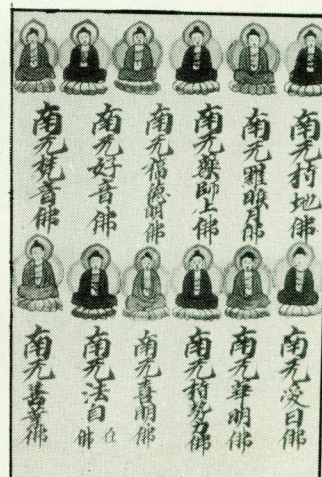 南无持地佛
南无羅睺月佛
南无藥師上佛
南无福德明佛
南无好音佛
南无梵音佛
南无愛日佛
南无華明佛
南无持势力佛
南无喜明佛
南无法自在佛
南无善業佛